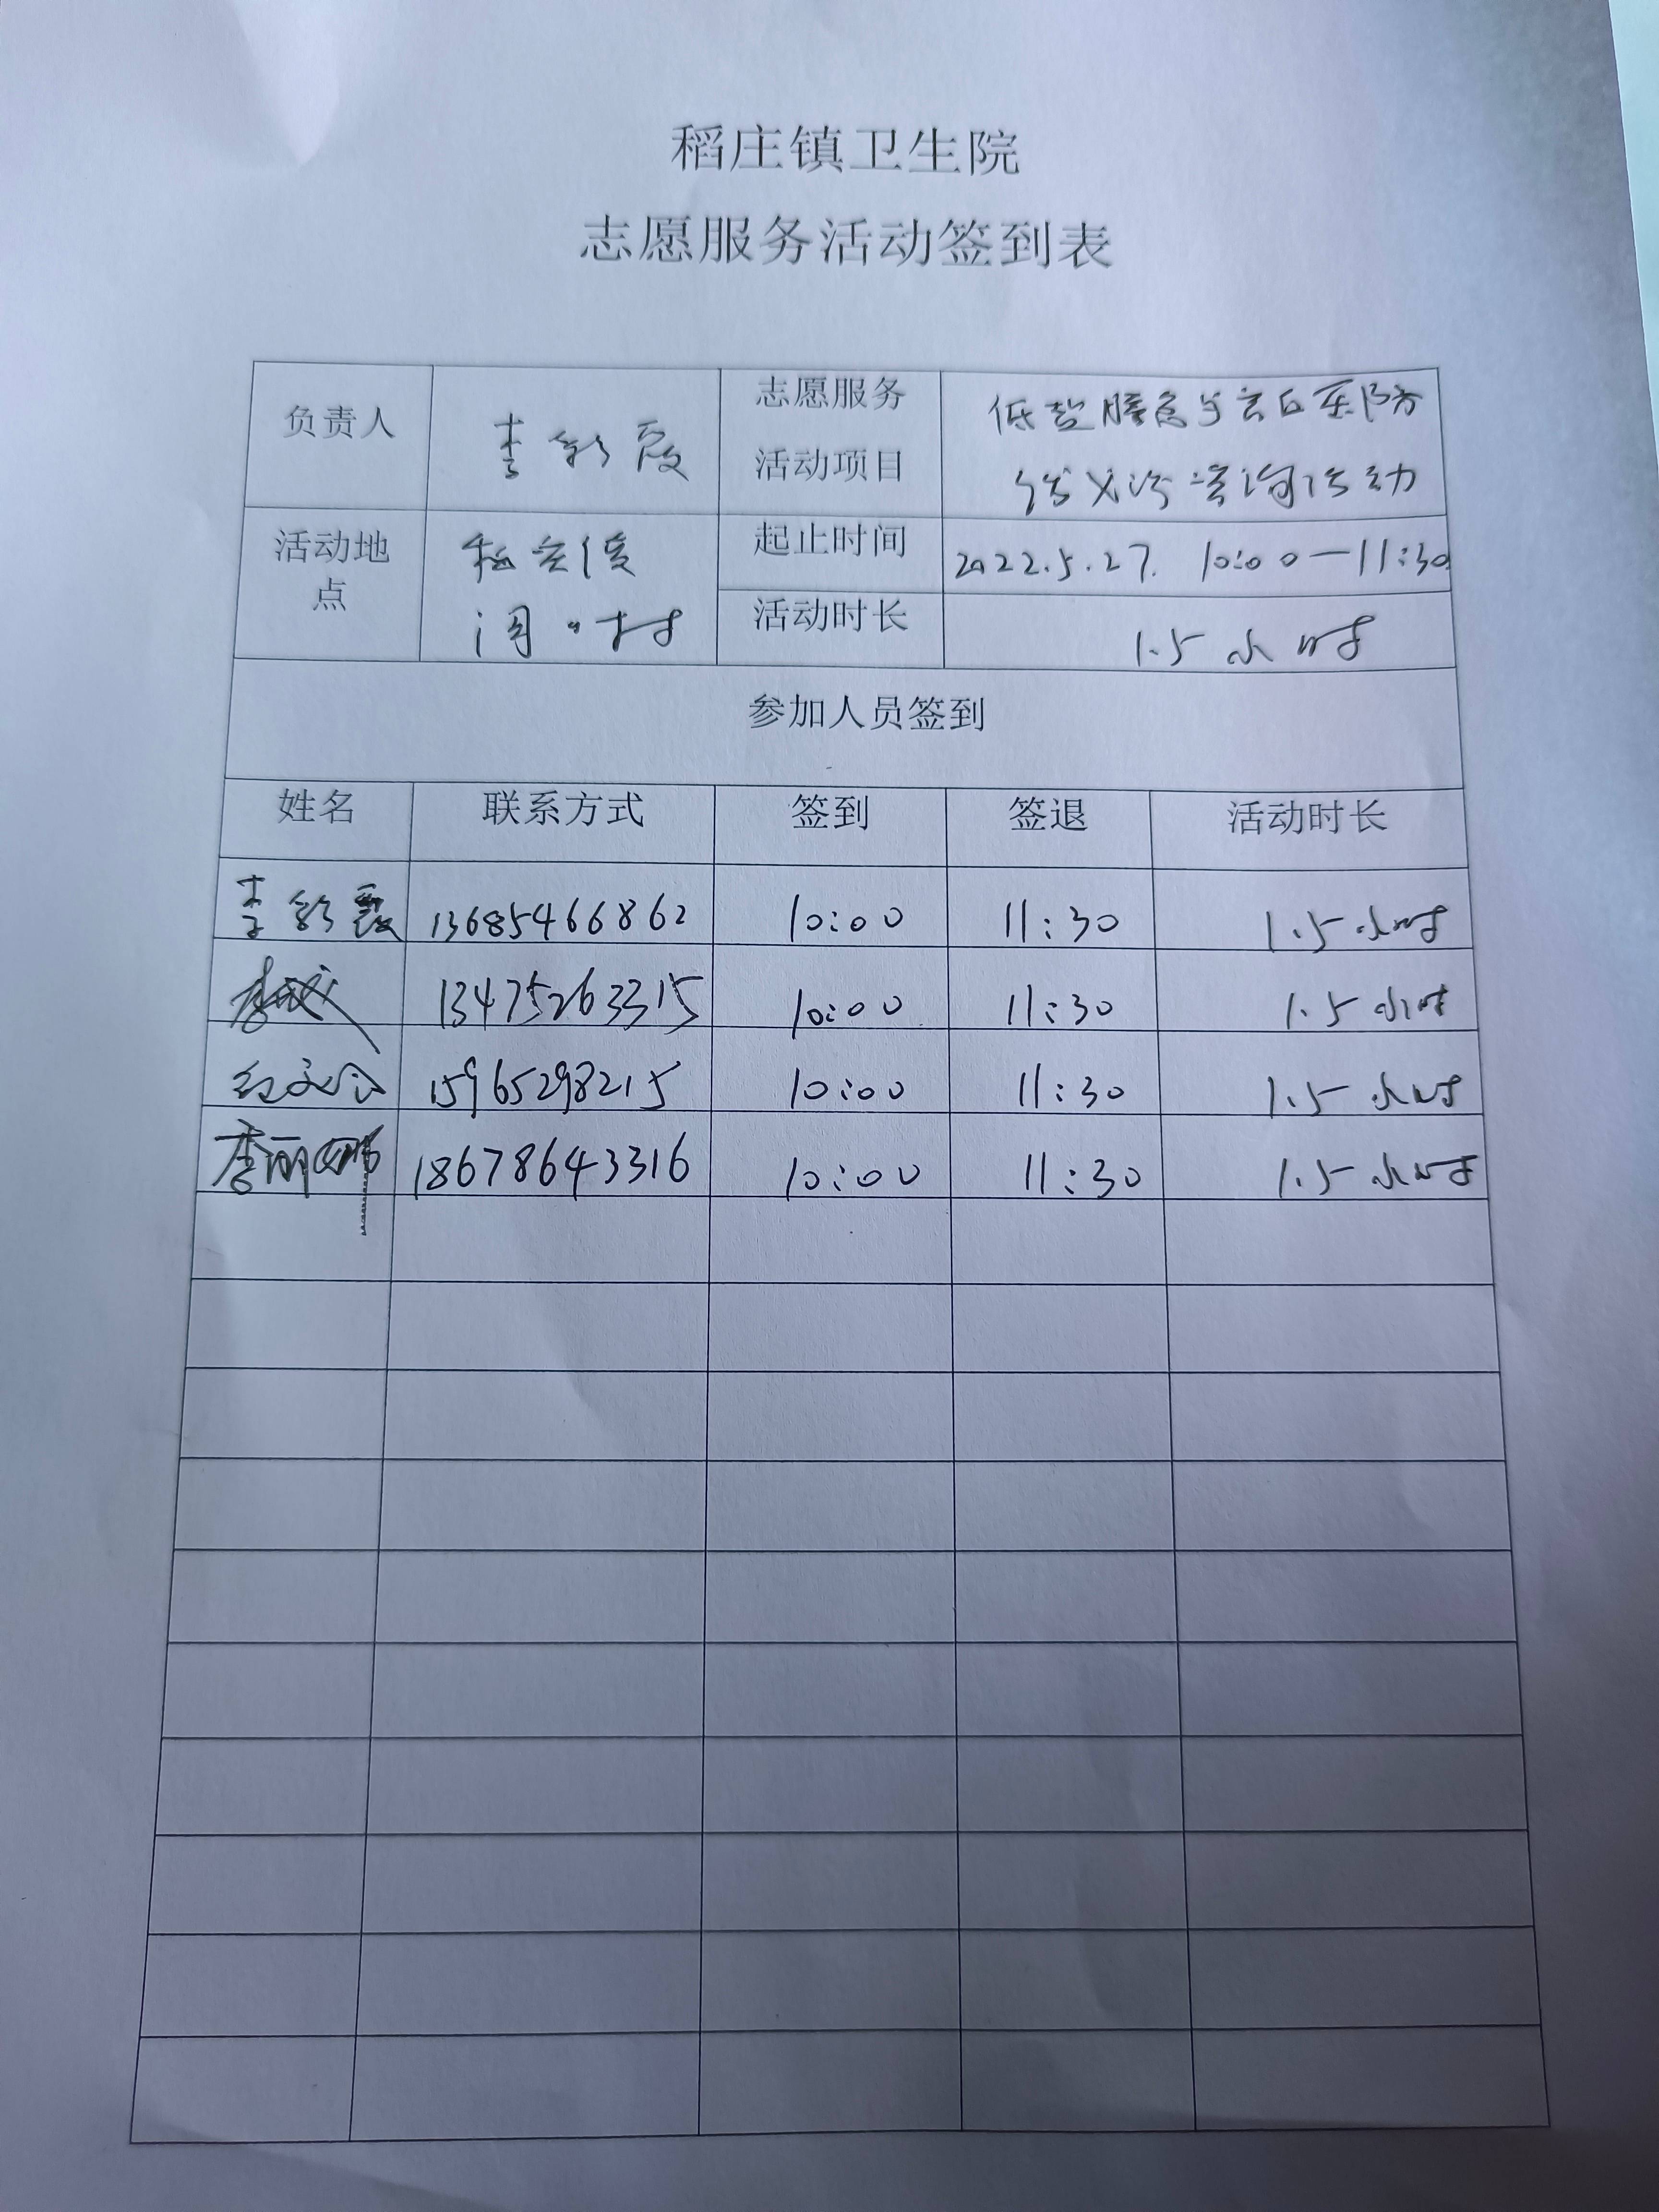 稻庄镇卫生院
志愿服务活动签到表
负责人 李彩霞 志愿服务活动项目 低盐膳食与高血压防
治义诊咨询活动
活动地点 起止时间 2022.5.27. 10:00—11:30
活动时长 1.5小时
参加人员签到
姓名 联系方式 签到 签退 活动时长
李彩霞 13685466862 10:00 11:30 1.5小时
13475263315 10:00 11:30 1.5小时
15965298215 10:00 11:30 1.5小时
李丽娜 18678643316 10:00 11:30 1.5小时